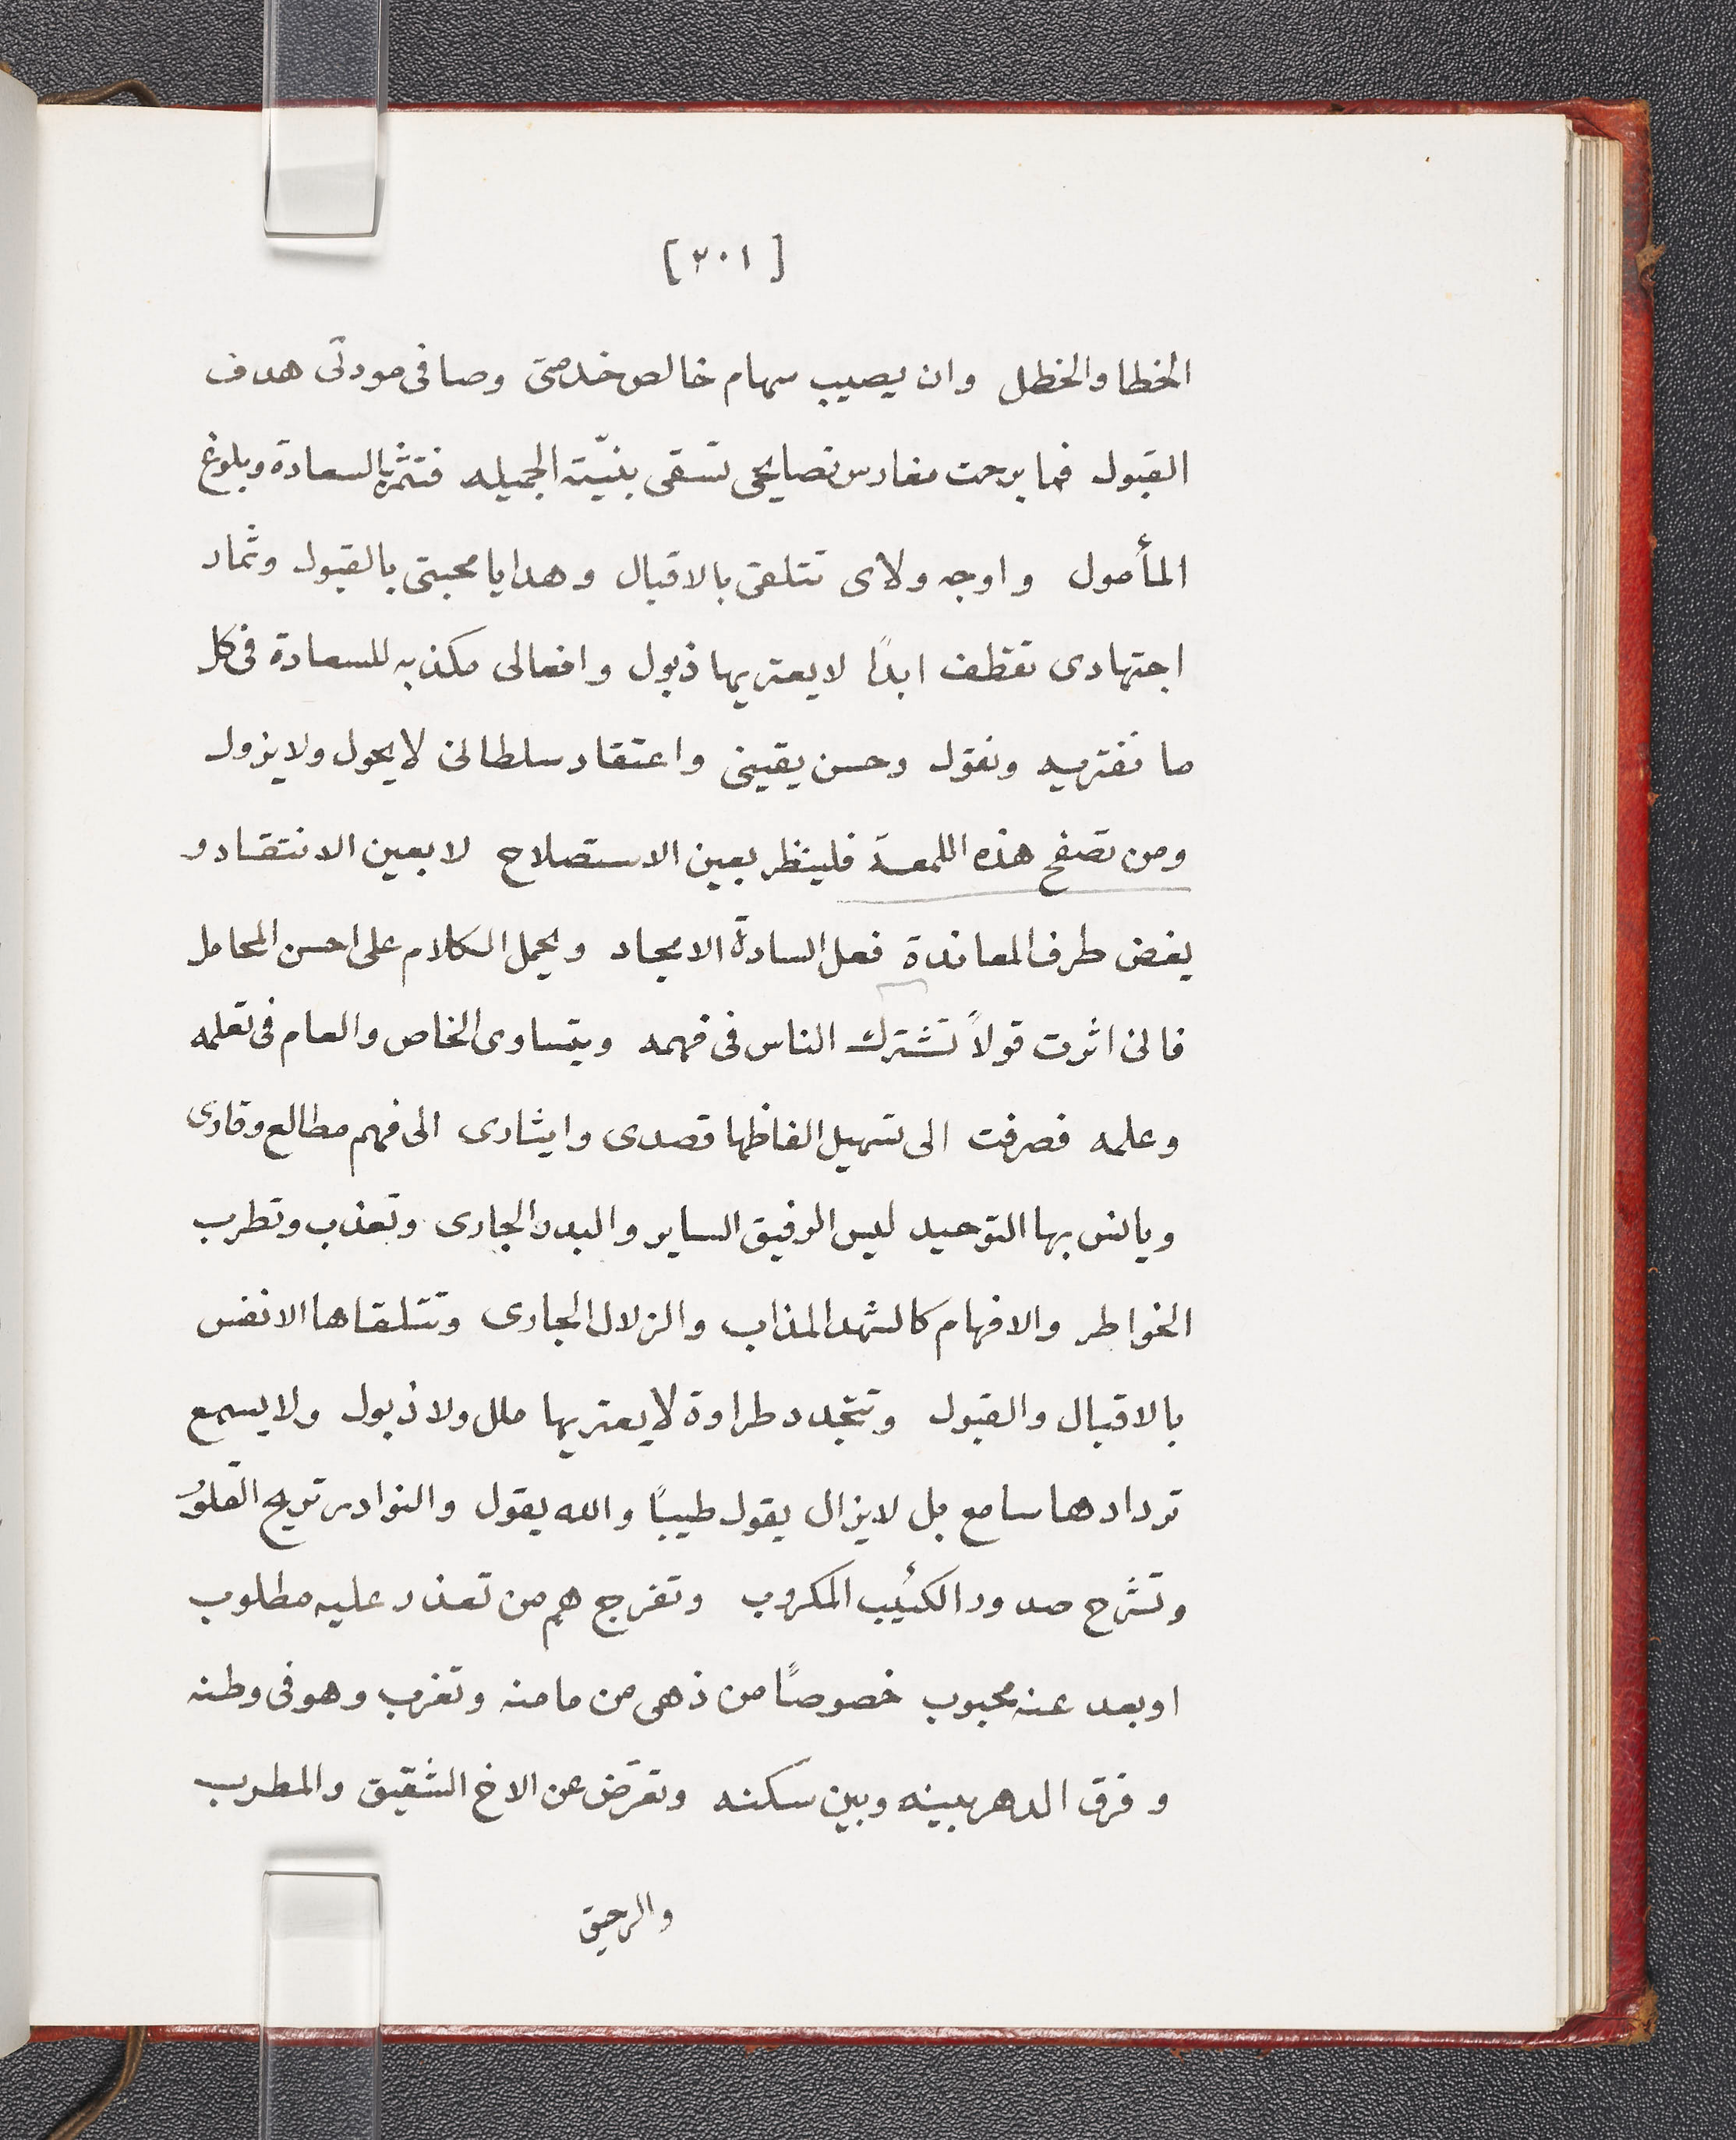 [٢٠١]
الخطا والخطل وان يصيب سهام خالص خدمتى وصافى مودتى هدف
القبول فما برحت مغارس نصايحى تسقى بنيّة الجميله فتثمر بالسعادة وبلوغ
المأمول واوجه ولاى تتلقى بالاقبال وهدايا محبتى بالقبول وثمار
اجتهادى تقطف ابدًا لا يعتريها ذبول وافعالى مكذبه للسعادة فى كل
ما نفتريه ونقول وحسن يقينى واعتقاد سلطانى لا يحول ولا يزول
ومن تصفح هذه اللمعة فلينظر بعين الاستصلاح لا بعين الانتقاد و
يغض طرف المعاندة فعل السادة الامجاد ويحمل الكلام على احسن المحامل
فانى اثرت قولاً تشترك الناس فى فهمه ويتساوى الخاص والعام فى تعلمه
وعلمه فصرفت الى تسهيل الفاظها قصدى وايثارى الى فهم مطالع وقارى
ويانس بها التوحيد ليس الرفيق الساير والبدر الجارى وتعذب وتطرب
الخواطر والافهام كالشهد المذاب والزلال الجارى وتتلقاها الانفس
بالاقبال والقبول وتتجدد طراوة لا يعتريها ملل ولا ذبول ولا يسمع
تردادها سامع بل لا يزال يقول طيبًا والله يقول والنوادر تريح القلوب
وتشرح صدور الكئيب المكروب وتفرج هم من تعذر عليه مطلوب
او بعد عنه محبوب خصوصًا من ذهى من مامنه وتغرب وهو فى وطنه
وفرق الدهر بينه وبين سكنه وتعرّض عن الاخ الشقيق والمطرب
والرحيق